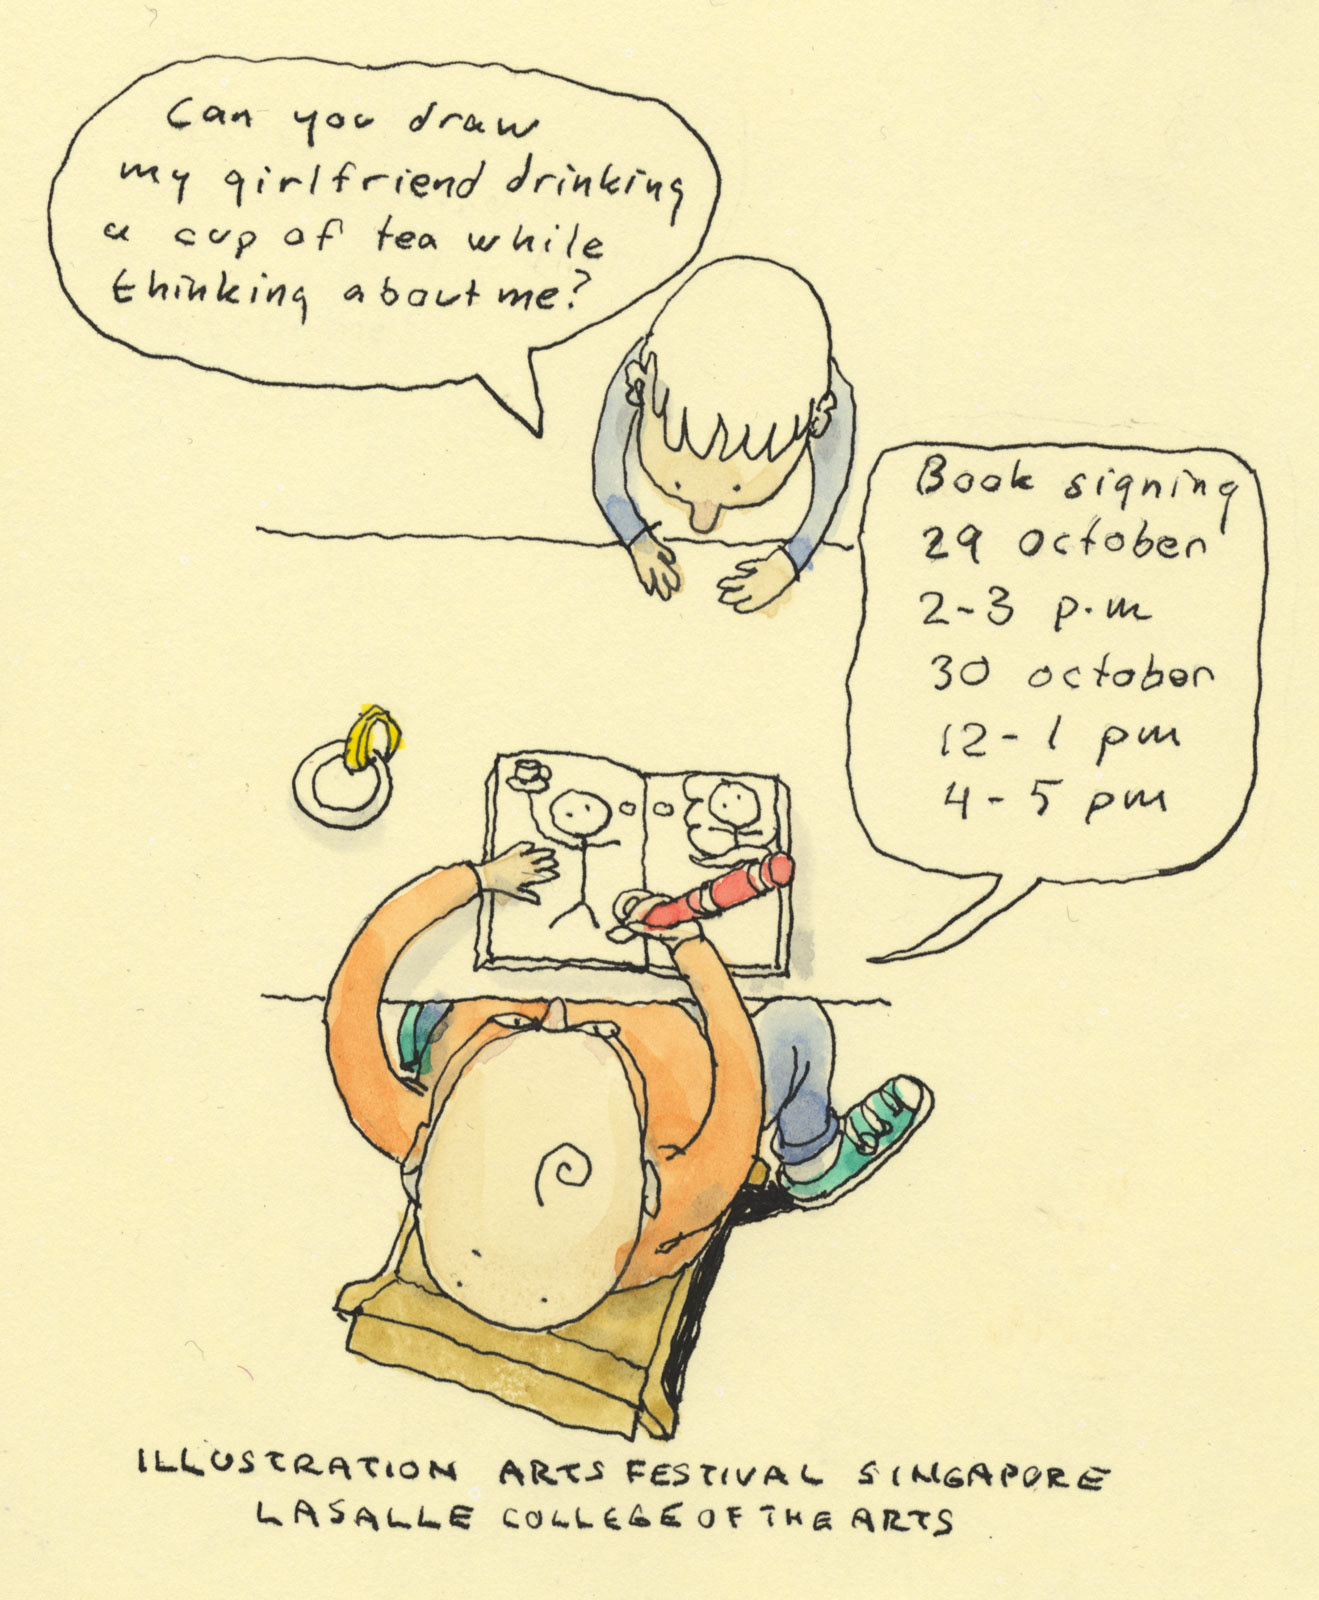 Can you draw
my girlfriend drinking
a cup of tea while
thinking about me?
Book signing
29 october
2-3 p.m
30 october
12-1 pm
4-5 pm
ILLUSTRATION ARTS FESTIVAL SINGAPORE
LASALLE COLLEGE OF THE ARTS